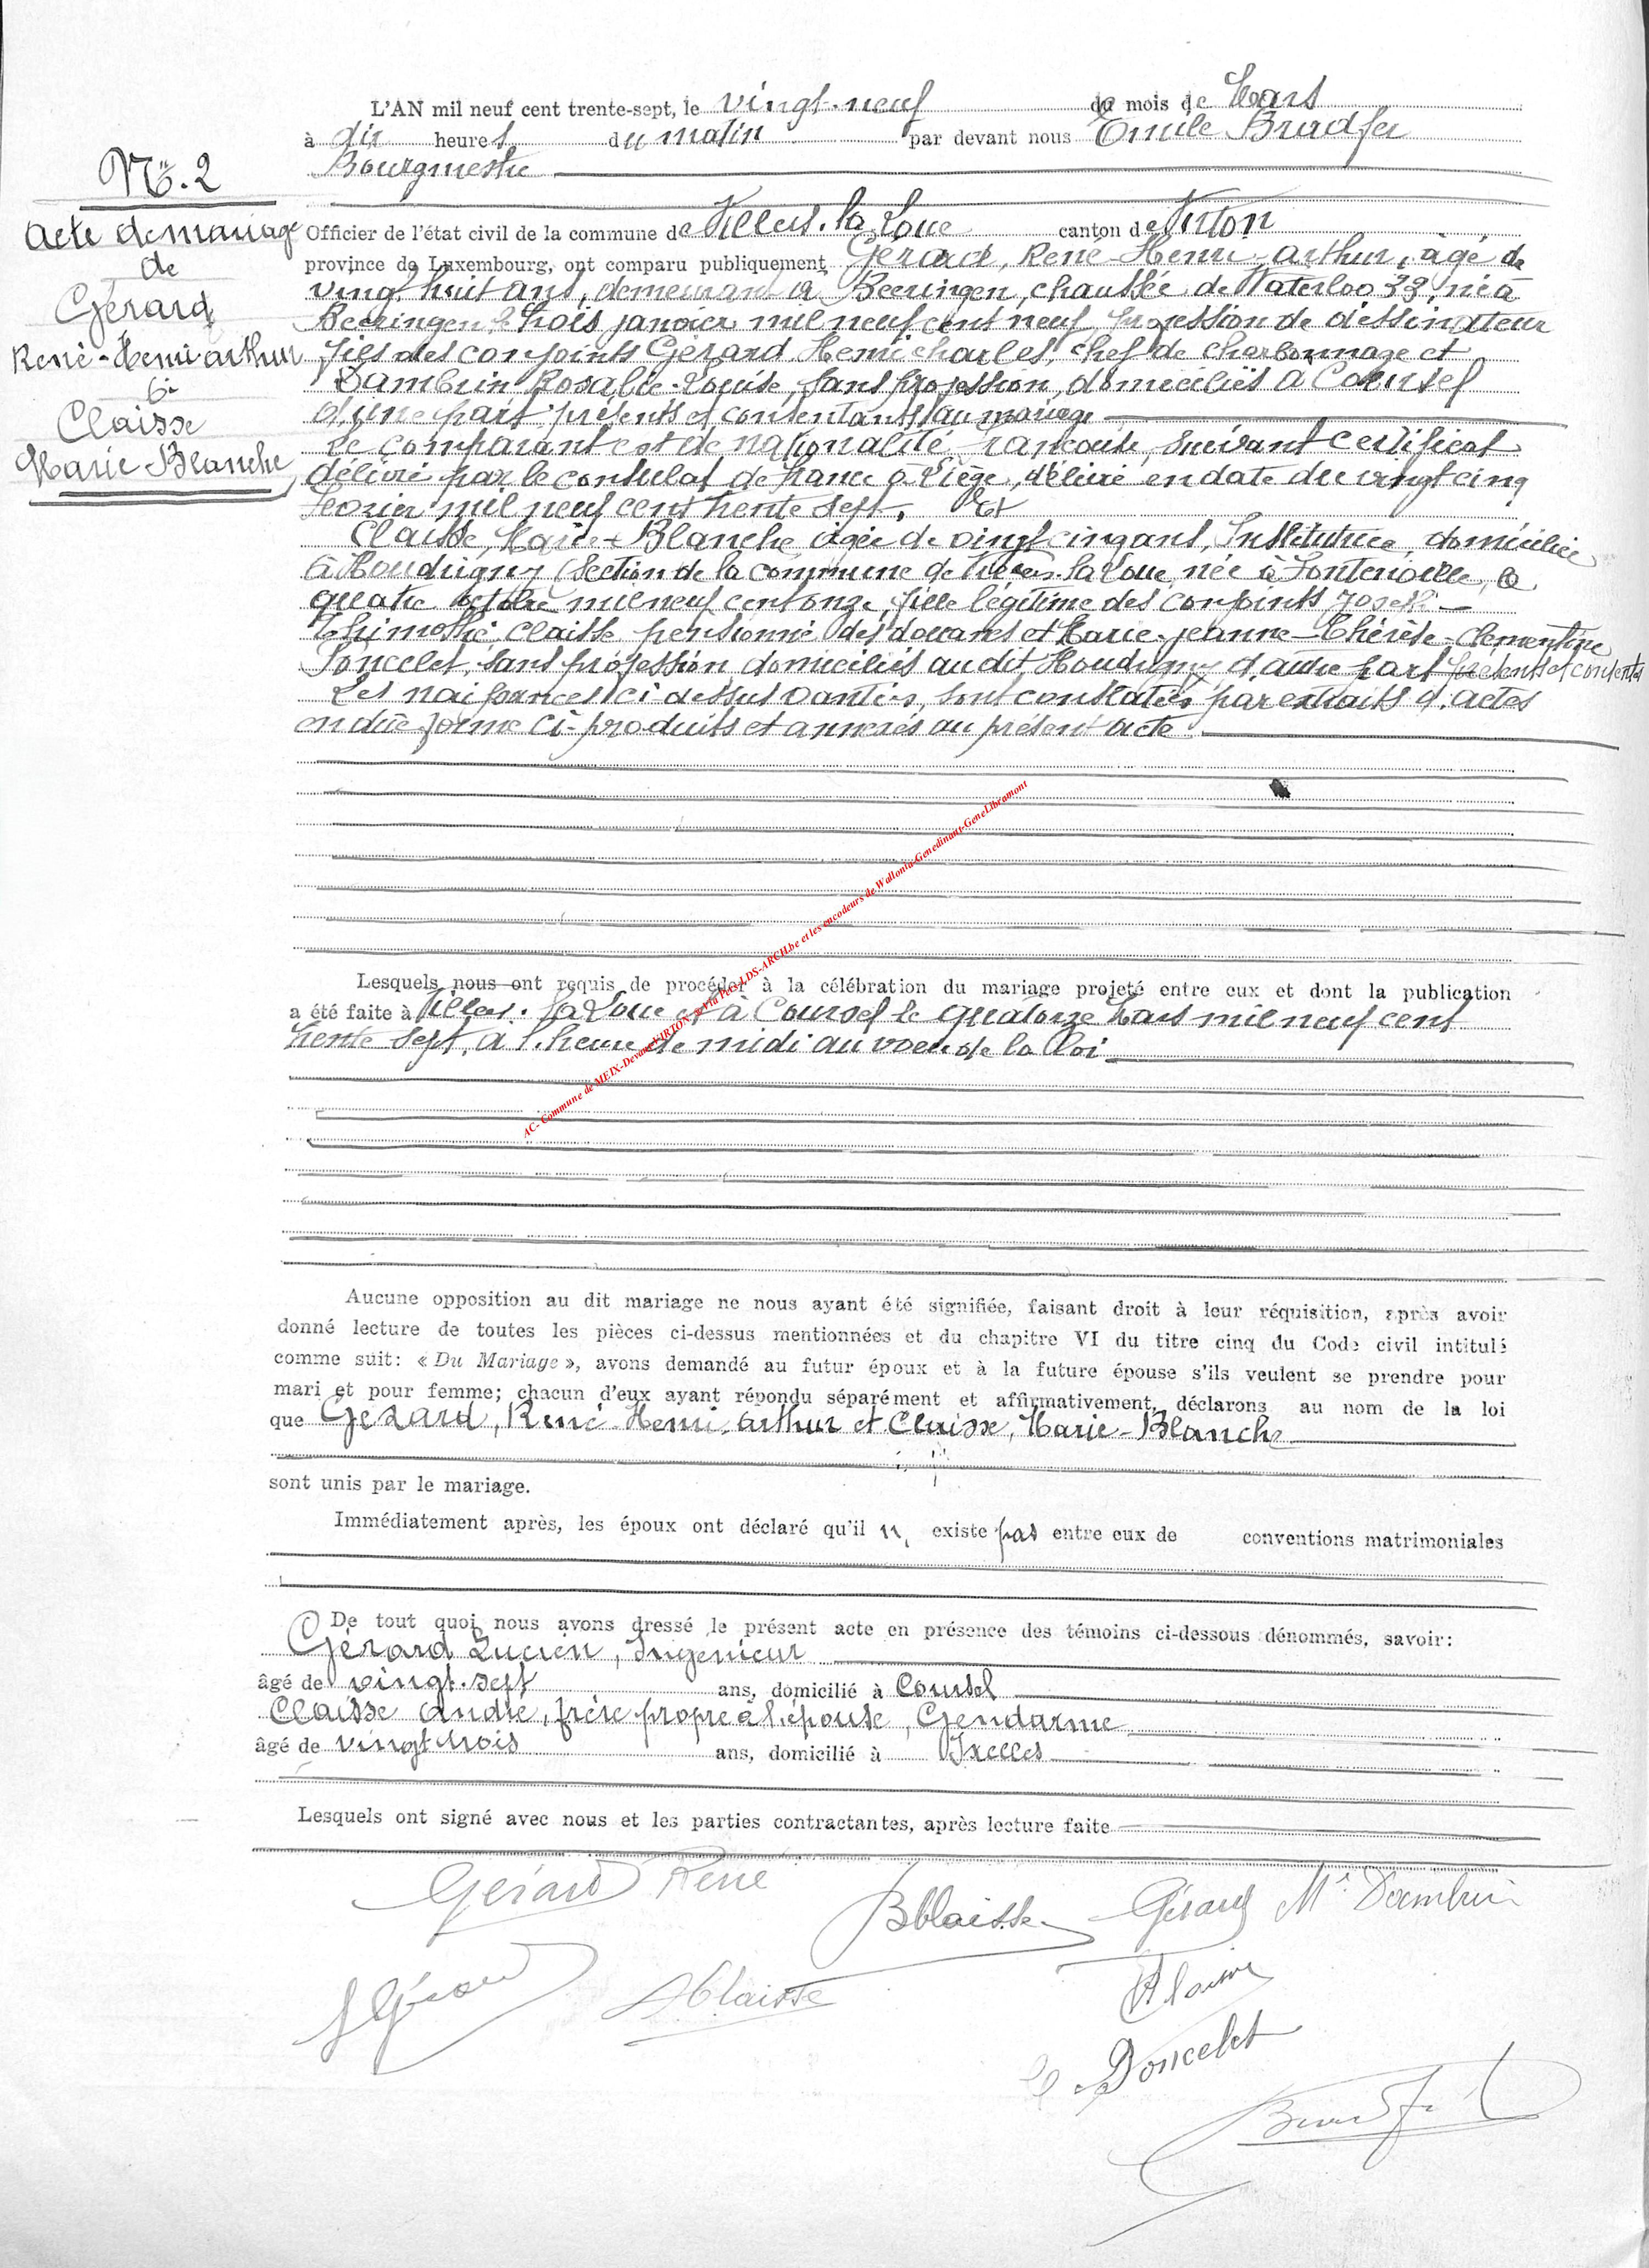 L'AN mil neuf cent trente-sept, le vingt-neuf du mois de Mars
à dix heures du matin par devant nous Emile Bradfer
Bourgmestre
No. 2
Acte de mariage
de
Gérard
René-Henri Arthur
&
Claisse
Marie Blanche
Officier de l'état civil de la commune de Villers-la-Loue canton de Virton
province de Luxembourg, ont comparu publiquement Gérard, René-Henri-Arthur, âgé de
vingt huit ans, demeurant à Beeringen, chaussée de Waterloo 33, né à
Beeringen le trois janvier mil neuf cent neuf, profession de dessinateur
fils des conjoints Gérard Henri charles, chef de charbonnage et
Dambrin Rosalie-Louise, sans profession, domiciliés à Coursel
d'une part, présents et consentants au mariage
Le comparant est de nationalité française, suivant certificat
délivré par le consulat de France à Liège, délivré en date du vingt cinq
février mil neuf cent trente sept. Et
Claisse, Marie-Blanche âgée de vingt cinq ans, Institutrice, domiciliée
à Houdrigny (section de la commune de Villers-la-Loue, née à Fontenoille, le
quatre octobre mil neuf cent onze, fille légitime des conjoints Joseph-
Thimothé Claisse pensionné des douanes et Marie-jeanne-Thérèse-clementine
Poncelet, sans profession, domiciliés au dit Houdrigny d'autre part présents et consents
Les naissances ci-dessus vantées, sont constatées par extraits d'actes
en due forme ci-produits et annexés au présent acte.
Lesquels nous ont requis de procéder à la célébration du mariage projeté entre eux et dont la publication
a été faite à Villers-la-Loue et à Coursel le quatorze Mars mil neuf cent
trente sept, à l'heure de midi au voeu de la loi
AC- Commune de MEIX-Devant-VIRTON via LDS-ARCH.be et les encodeurs de Wallonia-Genedinant-GeneLibramont
Aucune opposition au dit mariage ne nous ayant été signifiée, faisant droit à leur réquisition, après avoir
donné lecture de toutes les pièces ci-dessus mentionnées et du chapitre VI du titre cinq du Code civil intitulé
comme suit: « Du Mariage », avons demandé au futur époux et à la future épouse s'ils veulent se prendre pour
mari et pour femme; chacun d'eux ayant répondu séparément et affirmativement, déclarons au nom de la loi
que Gérard, René-Henri-Arthur et Claisse, Marie-Blanche
sont unis par le mariage.
Immédiatement après, les époux ont déclaré qu'il n' existe pas entre eux de conventions matrimoniales
De tout quoi nous avons dressé le présent acte en présence des témoins ci-dessous dénommés, savoir:
Gérard Lucien, Ingénieur
âgé de vingt-sept ans, domicilié à Coursel
Claisse André, frère propre à l'épouse, Gendarme
âgé de vingt trois ans, domicilié à Ixelles
Lesquels ont signé avec nous et les parties contractantes, après lecture faite
Gérard René
BClaisse Gérard Me Dambrin
LGérard AClaisse
Claisse
Poncelet
Bradfer